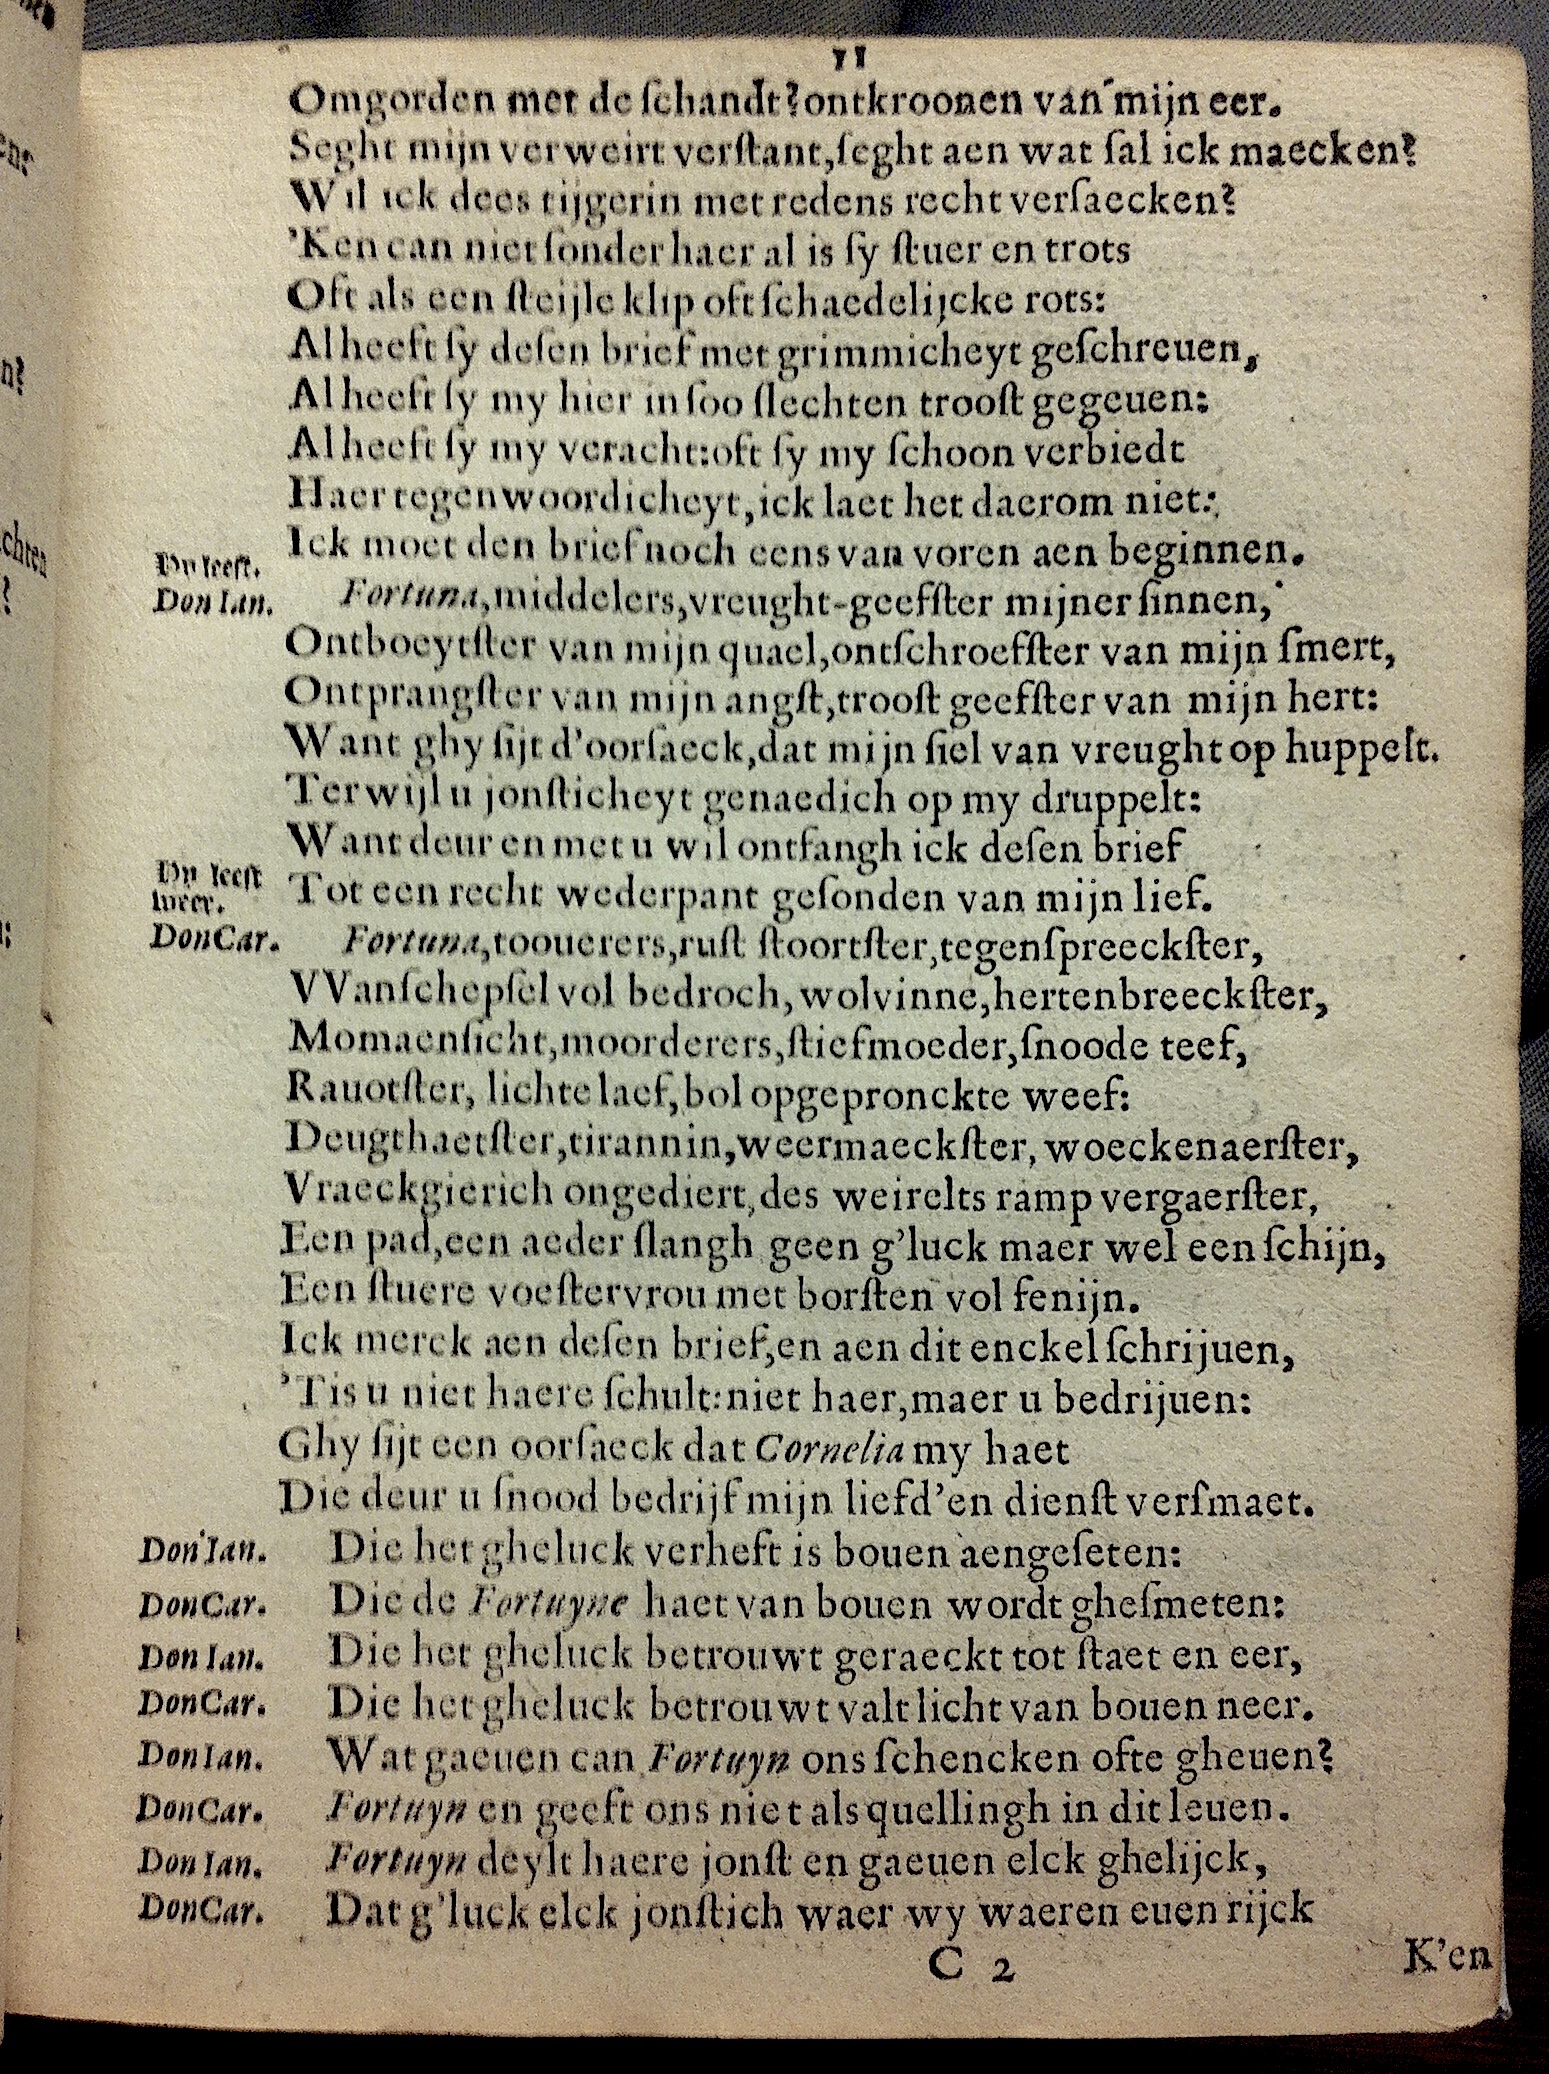 11
Omgorden met de ſchandt? ontkroonen van mijn eer.
Seght mijn verweirt verſtant, ſeght aen wat ſal ick maecken?
Wil ick dees tijgerin met redens recht verſaecken?
'Ken can niet ſonder haer al is ſy ſtuer en trots
Oft als een ſteijle klip oft ſchaedelijcke rots:
Al heeft ſy deſen brief met grimmicheyt geſchreuen,
Al heeft ſy my hier in ſoo ſlechten trooſt gegeuen:
Al heeft ſy my veracht: oft ſy my ſchoon verbiedt
Haer tegenwoordicheyt, ick laet het daerom niet:
Ick moet den brief noch eens van voren aen beginnen.
Hy leeſt.
Don Ian. Fortuna, middelers, vreught-geefſter mijner ſinnen,
Ontboeytſter van mijn quael, ontſchroefſter van mijn ſmert,
Ontprangſter van mijn angſt, trooſt geefſter van mijn hert:
Want ghy ſijt d'oorſaeck, dat mijn ſiel van vreught op huppelt.
Terwijl u jonſticheyt genaedich op my druppelt:
Want deur en met u wil ontfangh ick deſen brief
Tot een recht wederpant geſonden van mijn lief.
Hy leeſt
weer.
Don Car. Fortuna, toouerers, ruſt ſtoortſter, tegenſpreeckſter,
VVanſchepſel vol bedroch, wolvinne, hertenbreeckſter,
Momaenſicht, moorderers, ſtiefmoeder, ſnoode teef,
Rauotſter, lichte laef, bol opgepronckte weef:
Deugthaetſter, tirannin, weermaeckſter, woeckenaerſter,
Vraeckgierich ongediert, des weirelts ramp vergaerſter,
Een pad, een aeder ſlangh geen g'luck maer wel een ſchijn,
Een ſtuere voeſtervrou met borſten vol fenijn.
Ick merck aen deſen brief, en aen dit enckel ſchrijuen,
'Tis u niet haere ſchult: niet haer, maer u bedrijuen:
Ghy ſijt een oorſaeck dat Cornelia my haet
Die deur u ſnood bedrijf mijn liefd' en dienſt verſmaet.
Don Ian. Die het gheluck verheft is bouen aengeſeten:
Don Car. Die de Fortuyne haet van bouen wordt gheſmeten:
Don Ian. Die het gheluck betrouwt geraeckt tot ſtaet en eer,
Don Car. Die het gheluck betrouwt valt licht van bouen neer.
Don Ian. Wat gaeuen can Fortuyn ons ſchencken ofte gheuen?
Don Car. Fortuyn en geeft ons niet als quellingh in dit leuen.
Don Ian. Fortuyn deylt haere jonſt en gaeuen elck ghelijck,
Don Car. Dat g'luck elck jonſtich waer wy waeren euen rijck
C 2
K'en